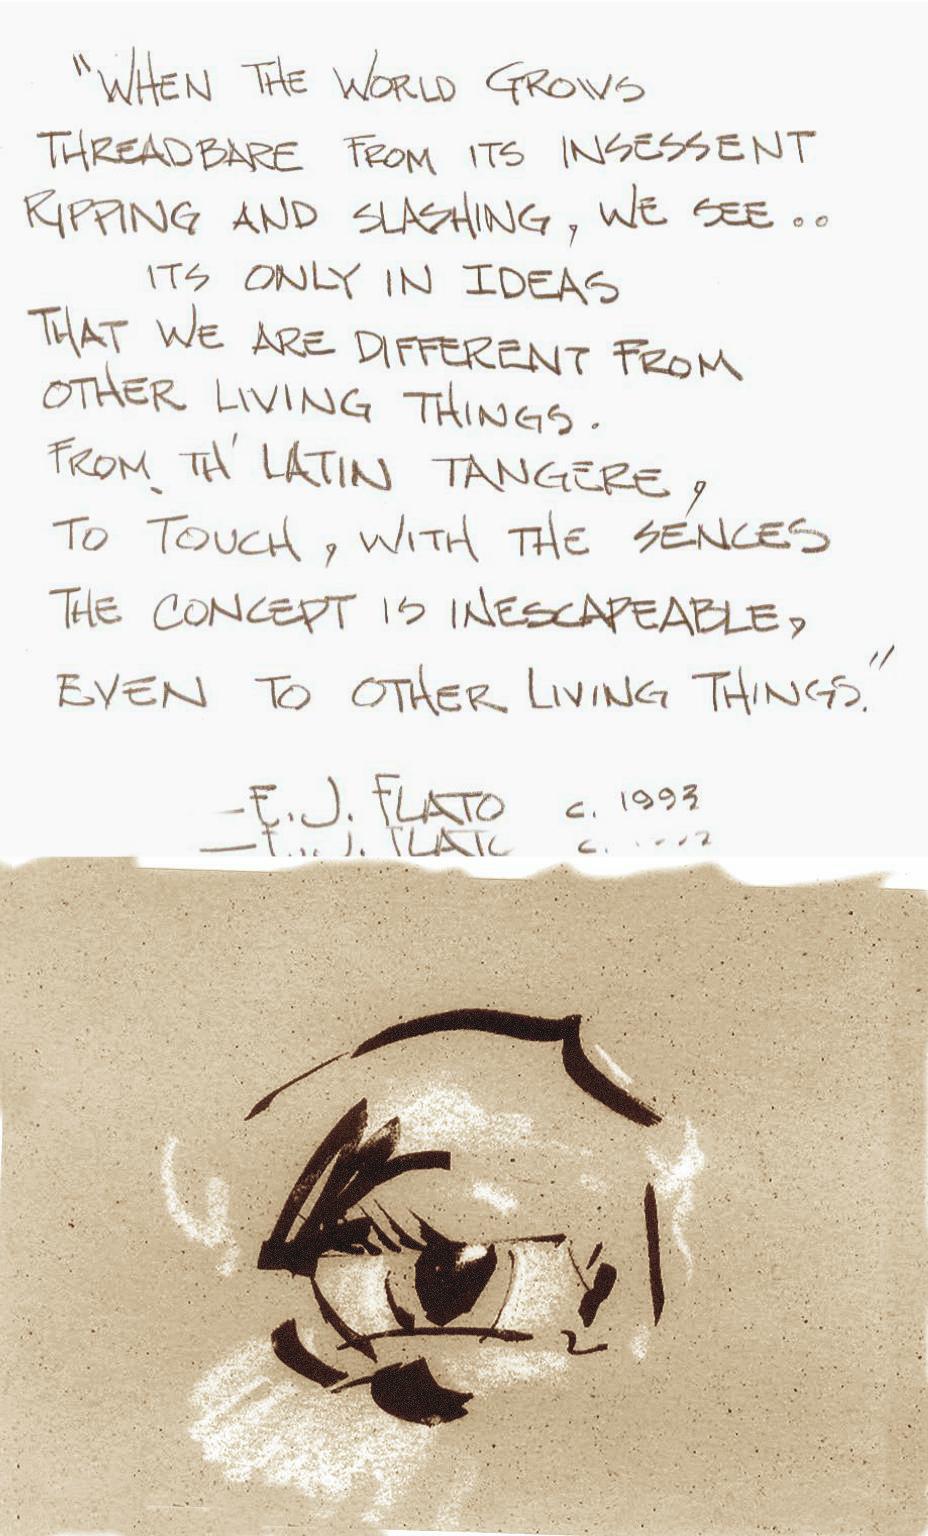 "WHEN THE WORLD GROWS
THREADBARE FROM ITS INSESSENT
RIPPING AND SLASHING, WE SEE..
ITS ONLY IN IDEAS
THAT WE ARE DIFFERENT FROM
OTHER LIVING THINGS.
FROM TH' LATIN TANGERE,
TO TOUCH, WITH THE SENCES
THE CONCEPT IS INESCAPEABLE,
EVEN TO OTHER LIVING THINGS."
-E.J. FLATO c. 1993